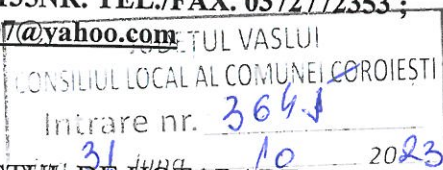 TEL./FAX. 0372772353 ;
7@yahoo.com
JUDEȚUL VASLUI
CONSILIUL LOCAL AL COMUNEI COROIEȘTI
Intrare nr. 3641
31 luna 10 2023